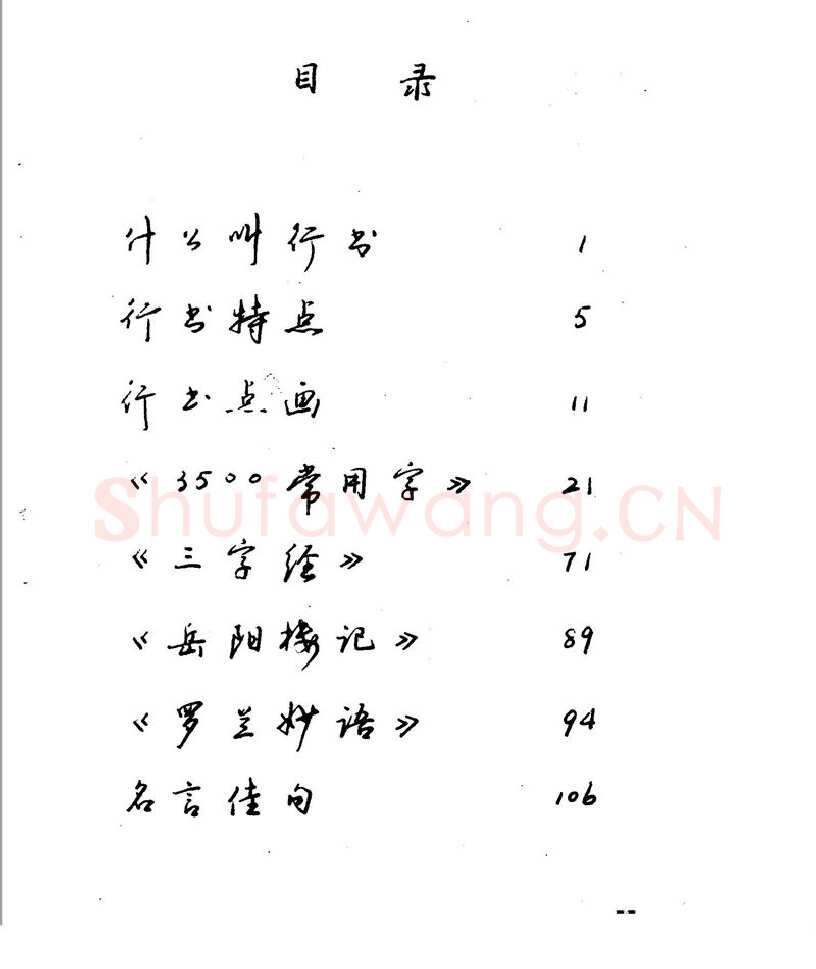 目 录
什么叫行书 1
行书特点 5
行书点画 11
《3500常用字》 21
Shufawang.CN
《三字经》 71
《岳阳楼记》 89
《罗兰妙语》 94
名言佳句 106
--